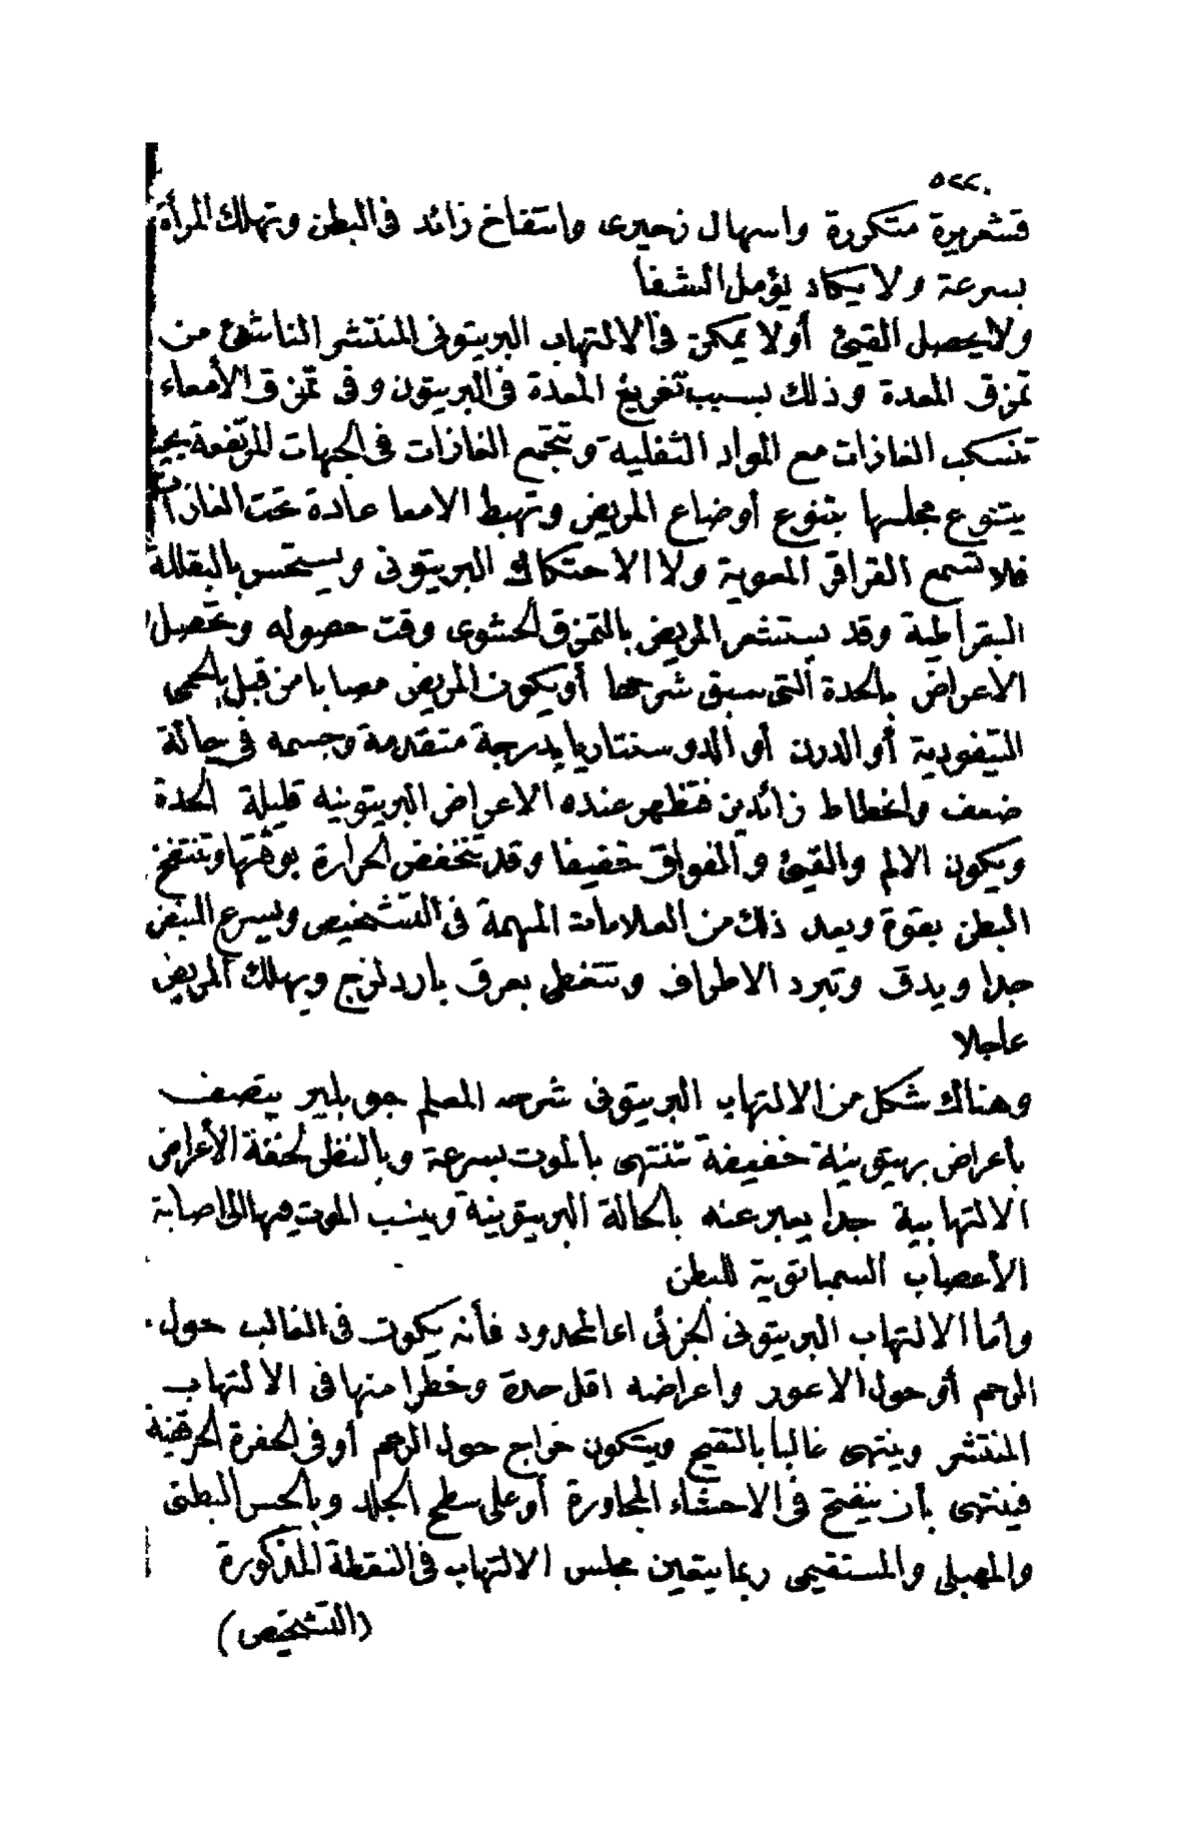 ٥٢٢
قشعريرة متكررة واسهال زحيرى وانتفاخ زائد فى البطن وتهلك المرأة
بسرعة ولا يكاد يؤمل الشفا
ولا يحصل القيئ أو لا يمكن فى الالتهاب البريتونى المنتشر الناشئ من
تمزق المعدة وذلك بسبب تفريغ المعدة فى البريتون وفى تمزق الأمعاء
تنسكب الغازات مع المواد الثفلية وتتجمع الغازات فى الجهات المرتفعة بحيث
يتنوع مجلسها بتنوع أوضاع المريض وتهبط الامعا عادة تحت الغازات
فلا تسمع القراقر المعوية ولا الاحتكاك البريتونى ويستحس بالبقللة
البقراطية وقد يستشعر المريض بالتمزق الحشوى وقت حصوله وتحصل
الاعراض بالحدة التى سبق شرحها أو يكون المريض مصابا من قبل بالحمى
التيفودية أو الدرن أو الدوسنتاريا بدرجة متقدمة وجسمه فى حالة
ضعف وانحطاط زائدين فتظهر عنده الاعراض البريتونيه قليلة الحدة
ويكون الالم والقيئ والفواق خفيفا وقد تنخفض الحرارة بوقتها وتنتفخ
البطن بقوة ويعد ذلك من العلامات المهمة فى التشخيص ويسرع النبض
جدا ويدق وتبرد الاطراف وتتغطى بعرق بارد لزج ويهلك المريض
عاجلا
وهناك شكل من الالتهاب البريتونى شرحه المعلم جوبلير يتصف
بأعراض بريتونية خفيفة تنتهى بالموت بسرعة وبالنظر لخفة الأعراض
الالتهابية جدا يعبر عنه بالحالة البريتونية وينسب الموت فيها الى اصابة
الأعصاب السمباتوية للبطن
وأما الالتهاب البريتونى الجزئى اى المحدود فأنه يكون فى الغالب حول
الرحم أو حول الاعور واعراضه اقل حدة وخطرا منها فى الالتهاب
المنتشر وينتهى غالبا بالتقيح ويتكون خراج حول الرحم أو فى الحفرة الحرقفية
فينتهى بأن ينفتح فى الاحشاء المجاورة أو على سطح الجلد وبالحس البطنى
والمهبلى والمستقيمى ربما يتعين مجلس الالتهاب فى النقطة المذكورة
(التشخيص)